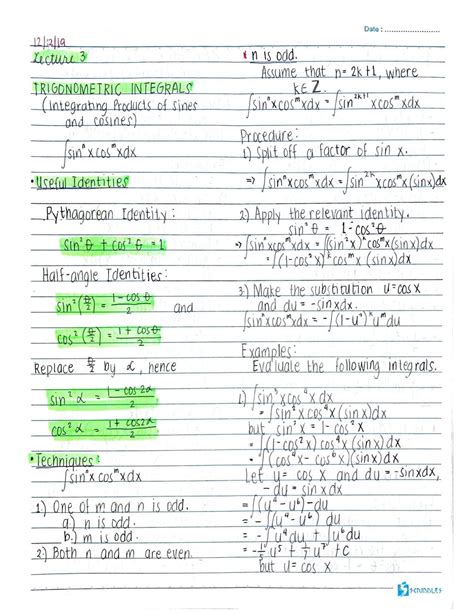 Date : ........................
12/2/19
Lecture 3
TRIGONOMETRIC INTEGRALS
(Integrating Products of sines
and cosines)
∫sinⁿxcosᵐxdx
• Useful Identities
Pythagorean Identity :
sin²θ + cos²θ = 1
Half-angle Identities :
sin²(θ/2) = (1 - cosθ)/2 and
cos²(θ/2) = (1 + cosθ)/2
Replace θ/2 by α, hence
sin²α = (1 - cos2α)/2
cos²α = (1 + cos2α)/2
• Techniques :
∫sinⁿxcosᵐxdx
1.) One of m and n is odd.
a.) n is odd.
b.) m is odd.
2.) Both n and m are even.
* n is odd.
Assume that n = 2k+1, where
k∈Z.
∫sinⁿxcosᵐxdx = ∫sin²ᵏ⁺¹xcosᵐxdx
Procedure :
1.) Split off a factor of sin x.
⇒ ∫sinⁿxcosᵐxdx = ∫sin²ᵏxcosᵐx(sinx)dx
2.) Apply the relevant identity.
sin²θ = 1-cos²θ
⇒ ∫sinⁿxcosᵐxdx = ∫(sin²x)ᵏcosᵐx(sinx)dx
= ∫(1-cos²x)ᵏcosᵐx(sinx)dx
3.) Make the substitution u=cosx
and du = -sinxdx.
∫sinⁿxcosᵐxdx = -∫(1-u²)ᵏuᵐdu
Examples :
Evaluate the following integrals.
1.) ∫sin³xcos⁴xdx
= ∫sin²xcos⁴x(sinx)dx
but sin²x = 1-cos²x
= ∫(1-cos²x)cos⁴x(sinx)dx
= ∫(cos⁴x-cos⁶x)(sinx)dx
Let u = cosx and du = -sinxdx,
-du = sinxdx
= ∫(u⁴-u⁶)-du
= -∫(u⁴-u⁶)du
= -∫u⁴du + ∫u⁶du
= -1/5 u⁵ + 1/7 u⁷ + C
but u = cosx